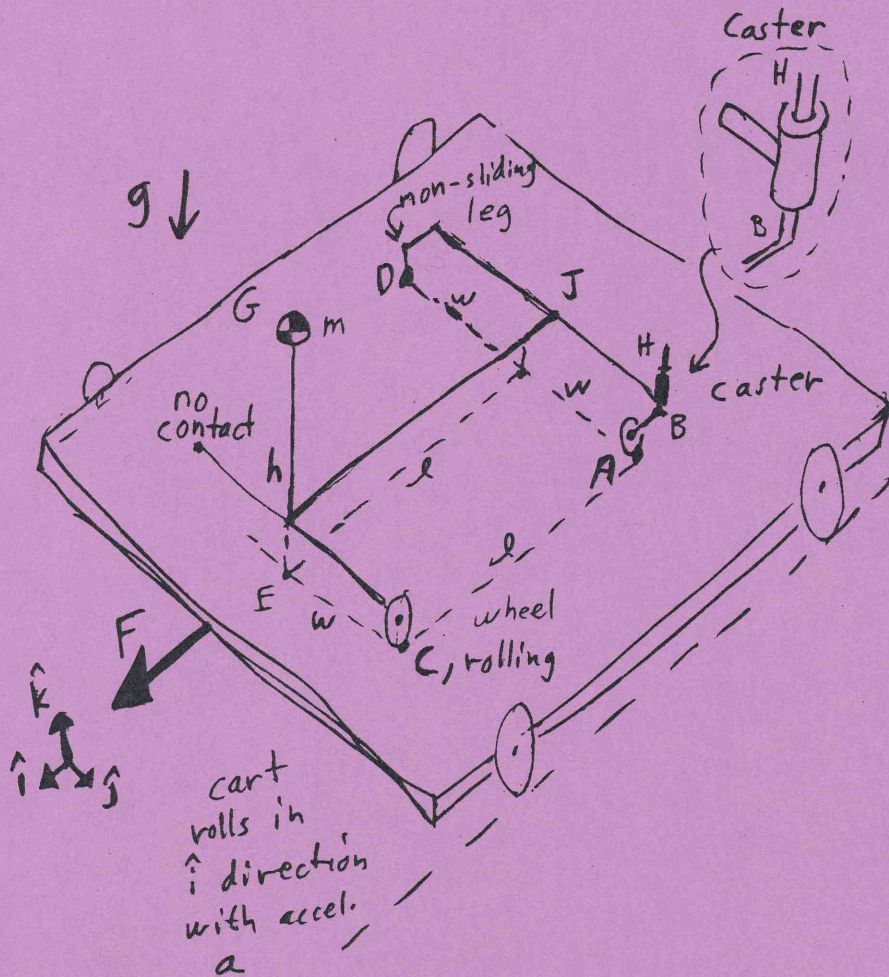 Caster
H
B
g
non-sliding
leg
D
w
J
G
m
H
caster
no
contact
w
B
A
h
l
l
E
w
wheel
C, rolling
F
k̂
î
ĵ
cart
rolls in
î direction
with accel.
a